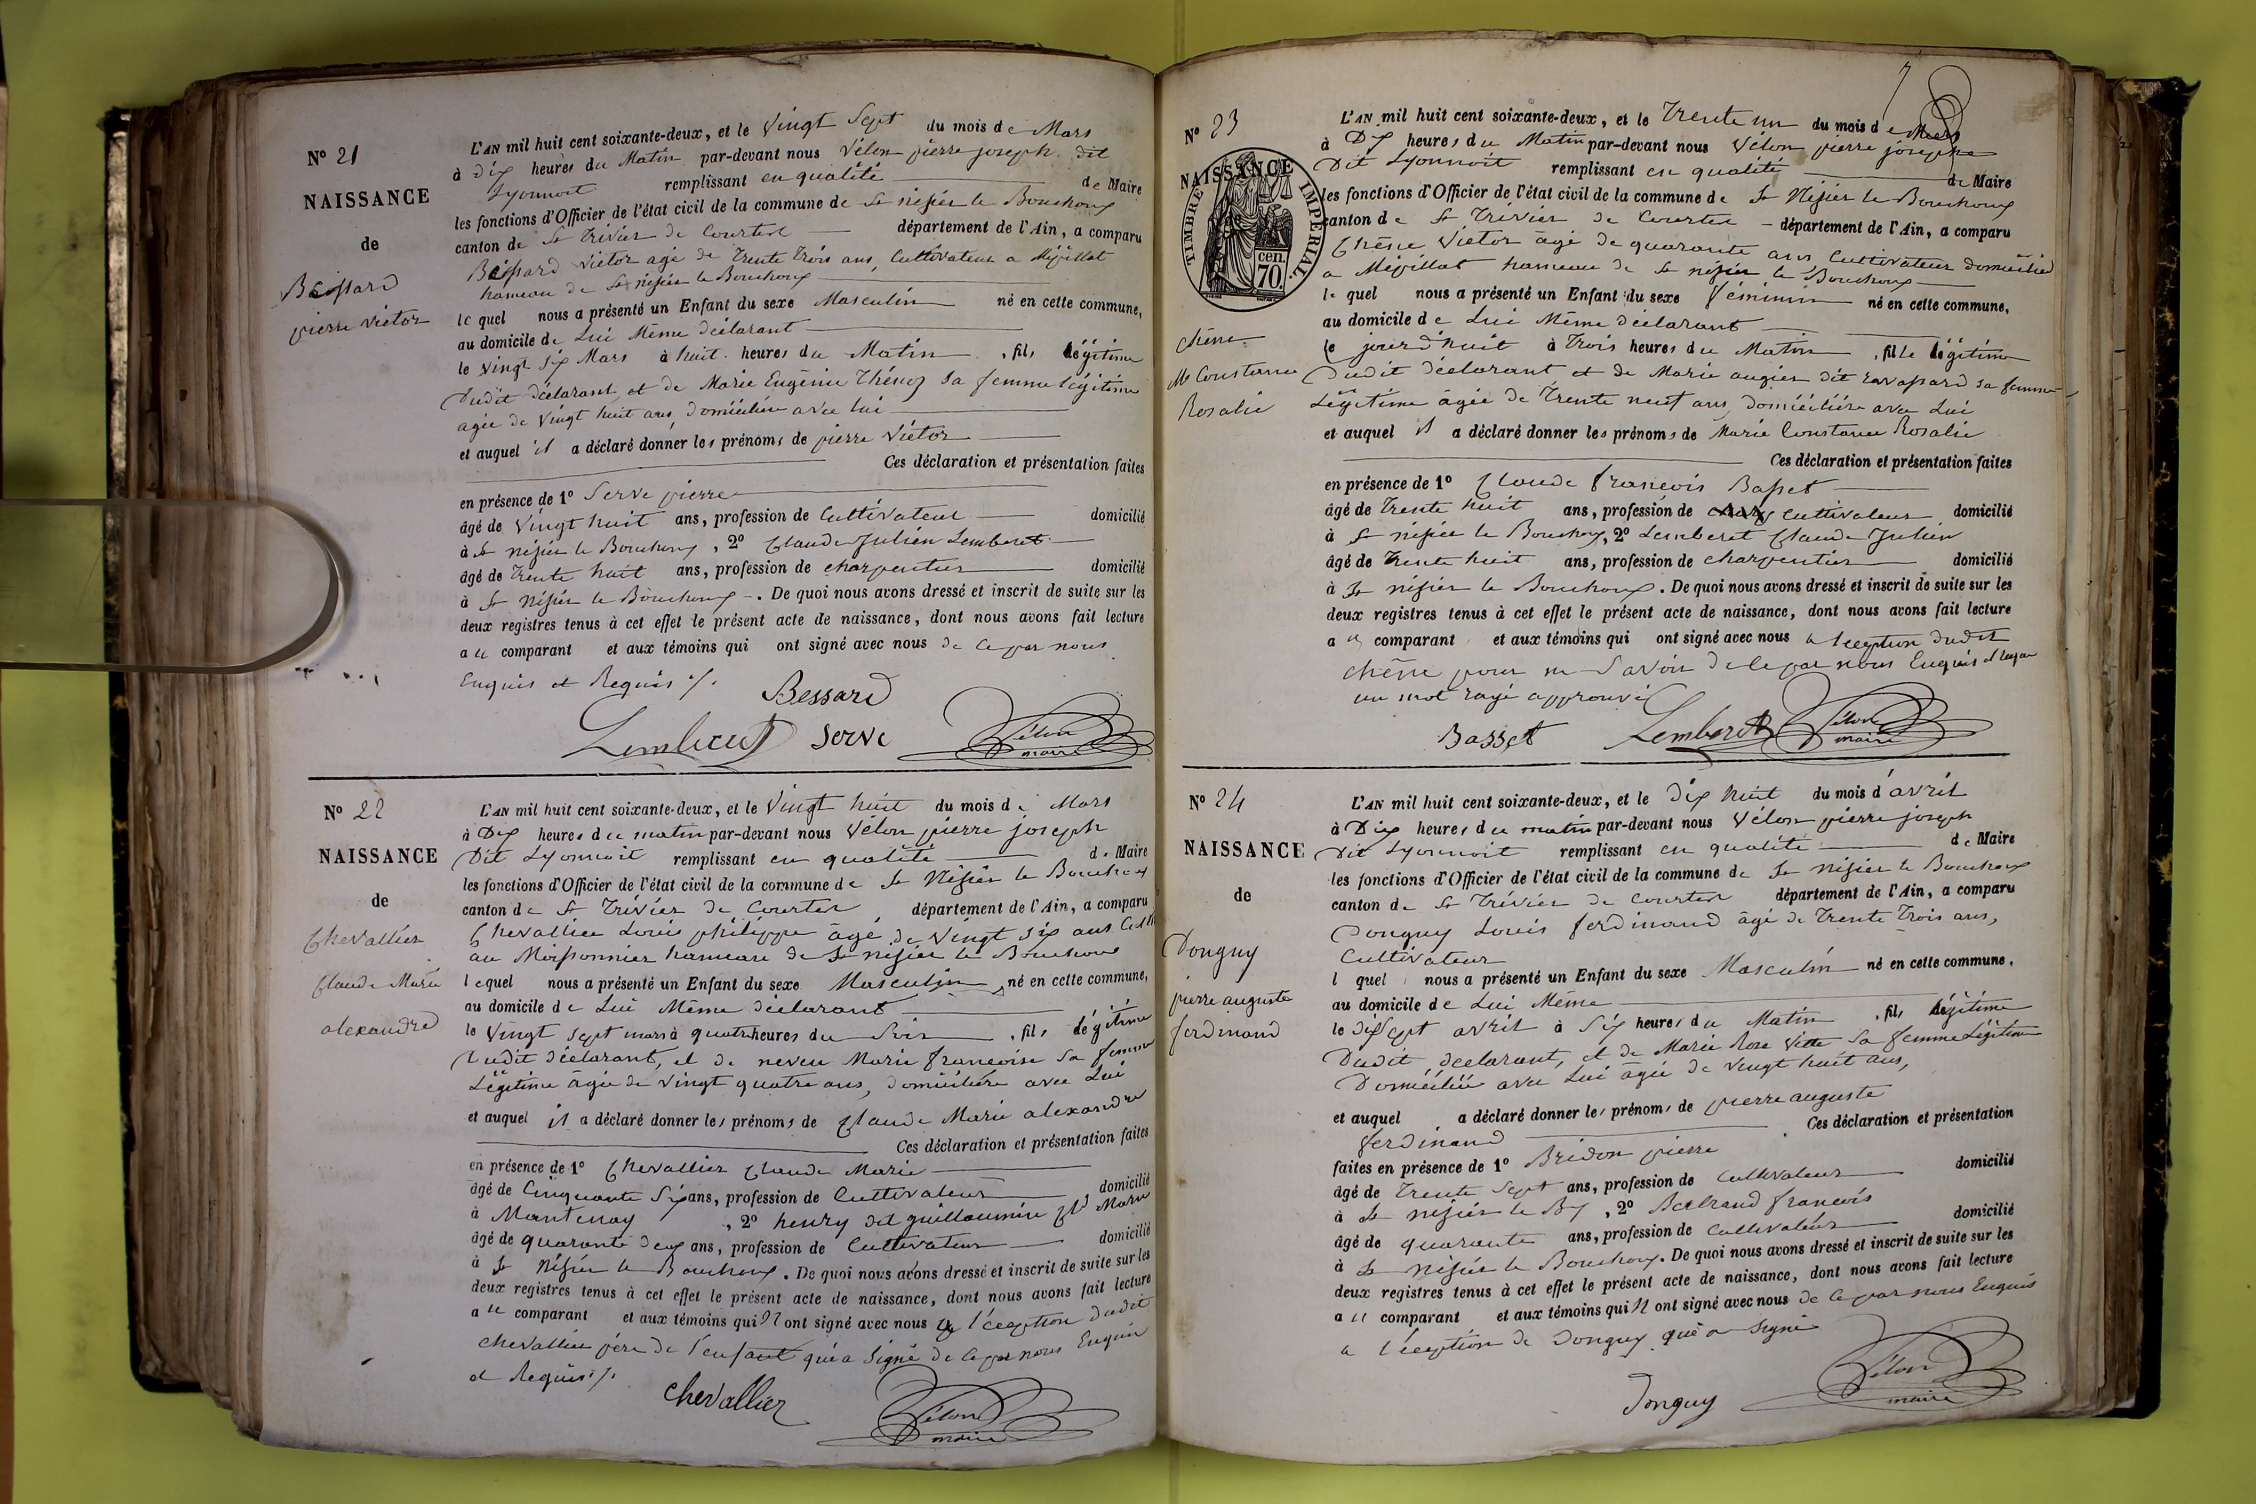 N° 21
NAISSANCE
de
Bessard
pierre victor
L'AN mil huit cent soixante-deux, et le Vingt Sept du mois de Mars
à dix heures du Matin par-devant nous Vélon pierre joseph dit
Lyonnoit remplissant en qualité de Maire
les fonctions d'Officier de l'état civil de la commune de St nisier le Bouchoux
canton de St Trivier de Courtes département de l'Ain, a comparu
Bessard victor agé de Trente Trois ans, Cultivateur a Mépillat
hameau de St nisier le Bouchoux
lequel nous a présenté un Enfant du sexe Masculin né en cette commune,
au domicile de Lui Même déclarant
le vingt six Mars à huit heures du Matin, fils légitime
Dudit déclarant, et de Marie Eugénie Thénoz sa femme Légitime
agée de Vingt huit ans, domiciliée avec lui
et auquel il a déclaré donner les prénoms de pierre victor
Ces déclaration et présentation faites
en présence de 1° Serve pierre
âgé de Vingt huit ans, profession de Cultivateur domicilié
à St nisier le Bouchoux, 2° Claude Julien Lemberet
âgé de Trente huit ans, profession de charpentier domicilié
à St Nisier le Bouchoux. De quoi nous avons dressé et inscrit de suite sur les
deux registres tenus à cet effet le présent acte de naissance, dont nous avons fait lecture
au comparant et aux témoins qui ont signé avec nous de ce par nous
Enquis et Requis ./.
Bessard
Lemberet Serve Vélon
maire
N° 22
NAISSANCE
de
Chevallier
Claude Marie
alexandre
L'AN mil huit cent soixante-deux, et le Vingt huit du mois de Mars
à Dix heures du matin par-devant nous Vélon pierre joseph
Dit Lyonnoit remplissant en qualité de Maire
les fonctions d'Officier de l'état civil de la commune de St Nisier le Bouchoux
canton de St Trévier de Courtes, département de l'Ain, a comparu
Chevallier Louis philippe âgé de vingt six ans Cult
au Moissonnier hameau de St nisier le Bouchoux
lequel nous a présenté un Enfant du sexe Masculin né en cette commune,
au domicile de Lui Même déclarant
le Vingt sept mars à quatre heures du Soir, fils légitime
Dudit déclarant, et de neveu Marie francoise sa femme
Légitime âgée de vingt quatre ans, domiciliée avec Lui
et auquel il a déclaré donner les prénoms de Claude Marie alexandre
Ces déclaration et présentation faites
en présence de 1° Chevallier Claude Marie
âgé de Cinquante Six ans, profession de Cultivateur domicilié
à Mantenay, 2° henry dit guillaumin Marie
âgé de quarante deux ans, profession de Cultivateur domicilié
à St Nisier le Bouchoux. De quoi nous avons dressé et inscrit de suite sur les
deux registres tenus à cet effet le présent acte de naissance, dont nous avons fait lecture
au comparant et aux témoins qui n ont signé avec nous a l'éception dudit
Chevallier père de l'enfant qui a Signé de ce par nous Enquis
et Requis ./.
Chevallier Vélon
maire
N° 23
NAISSANCE
de
TIMBRE IMPERIAL
70. cen.
chêne
Mie Constance
Rosalie
L'AN mil huit cent soixante-deux, et le Trente un du mois de Mars
à Dix heures du Matin par-devant nous Vélon pierre joseph
Dit Lyonnoit remplissant en qualité de Maire
les fonctions d'Officier de l'état civil de la commune de St Nisier le Bouchoux
canton de St Trivier de Courtes département de l'Ain, a comparu
Chêne Victor âgé de quarante ans Cultivateur domicilié
a Mépillat hameau de St nisier le Bouchoux
lequel nous a présenté un Enfant du sexe féminin né en cette commune,
au domicile de Lui Même déclarant
le jourd'huit à Trois heures du Matin, fille légitime
Dudit déclarant et de Marie augier dit ravassard sa femme
Légitime âgée de Trente neuf ans, domiciliée avec Lui
et auquel il a déclaré donner les prénoms de Marie Constance Rosalie
Ces déclaration et présentation faites
en présence de 1° Claude francois Basset
âgé de Trente huit ans, profession de cultivateur domicilié
à St nisier le Bouchoux, 2° Lemberet Claude Julien
âgé de Trente huit ans, profession de charpentier domicilié
à St nisier le Bouchoux. De quoi nous avons dressé et inscrit de suite sur les
deux registres tenus à cet effet le présent acte de naissance, dont nous avons fait lecture
au comparant et aux témoins qui ont signé avec nous a l'eception dudit
chêne pour ne Savoir de ce par nous Enquis et
un mot rayé approuvé
Basset Lemberet Vélon
maire
N° 24
NAISSANCE
de
Donguy
pierre auguste
ferdinand
L'AN mil huit cent soixante-deux, et le dix huit du mois d'avril
à Dix heures du matin par-devant nous Vélon pierre joseph
Dit Lyonnoit remplissant en qualité de Maire
les fonctions d'Officier de l'état civil de la commune de St Nisier le Bouchoux
canton de St Trévier de Courtes département de l'Ain, a comparu
Donguy Louis ferdinand âgé de Trente Trois ans,
Cultivateur
l quel nous a présenté un Enfant du sexe Masculin né en cette commune,
au domicile de Lui Même
le dix Sept avril à Six heures du Matin, fils légitime
Dudit déclarant, et de Marie Rose Vitte sa femme Légitime
Domiciliée avec Lui âgée de vingt huit ans,
et auquel a déclaré donner les prénoms de pierre auguste
ferdinand Ces déclaration et présentation
faites en présence de 1° Bridon pierre
âgé de Trente Sept ans, profession de cultivateur domicilié
à St nisier le Bx, 2° Bertrand francois
âgé de quarante ans, profession de Cultivateur domicilié
à St nisier le Bouchoux. De quoi nous avons dressé et inscrit de suite sur les
deux registres tenus à cet effet le présent acte de naissance, dont nous avons fait lecture
au comparant et aux témoins qui n ont signé avec nous de ce par nous Enquis
a l'éception de Donguy qui a Signé
Donguy Vélon
maire